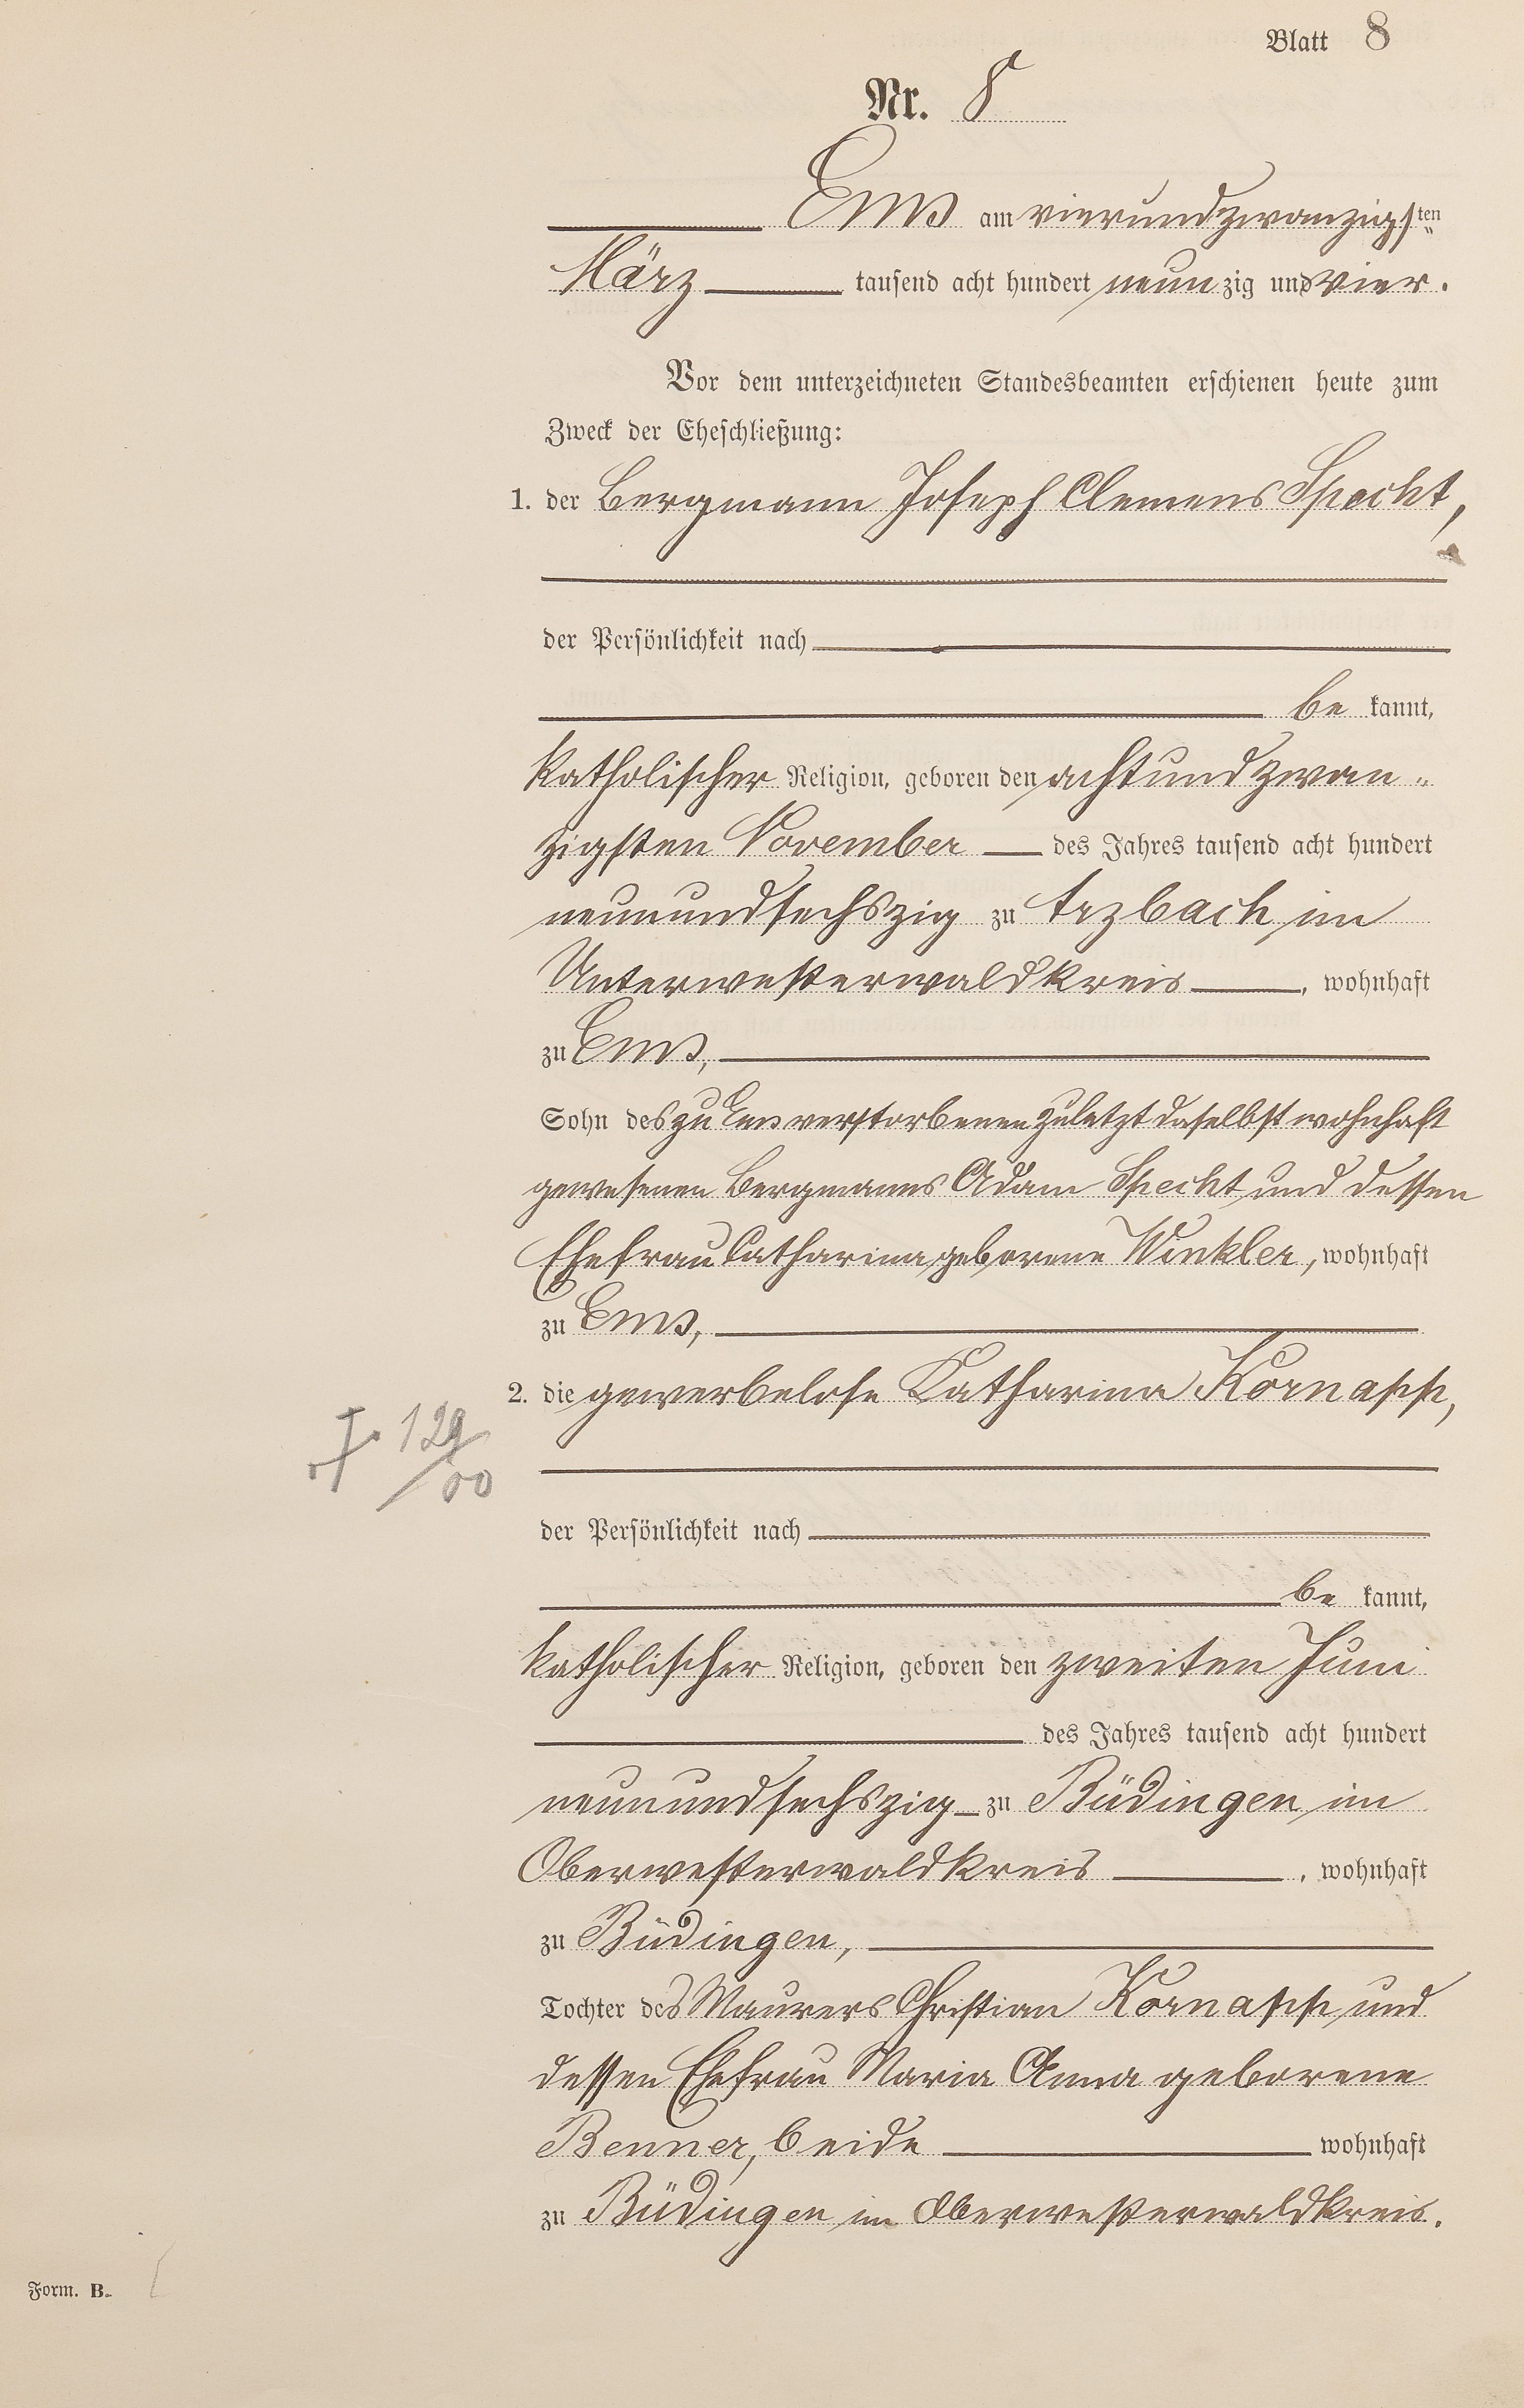 Blatt 8
Nr. 8
Ems am vierundzwanzigsten
März tausend acht hundert neunzig und vier.
Vor dem unterzeichneten Standesbeamten erschienen heute zum
Zweck der Eheschließung:
1. der Bergmann Joseph Clemens Specht,
der Persönlichkeit nach
be kannt,
katholischer Religion, geboren den achtundzwan-
zigsten November des Jahres tausend acht hundert
neunundsechszig zu Arzbach im
Unterwesterwaldkreis, wohnhaft
zu Ems,
Sohn des zu Ems verstorbenen zuletzt daselbst wohnhaft
gewesenen Bergmanns Adam Specht und dessen
Ehefrau Catharina geborene Winkler, wohnhaft
zu Ems,
2. die gewerbelose Katharina Kornapp,
†. 129/00
der Persönlichkeit nach
be kannt,
katholischer Religion, geboren den zweiten Juni
des Jahres tausend acht hundert
neunundsechszig zu Büdingen im
Oberwesterwaldkreis, wohnhaft
zu Büdingen,
Tochter des Maurers Christian Kornapp und
dessen Ehefrau Maria Anna geborene
Benner, beide wohnhaft
zu Büdingen im Oberwesterwaldkreis.
Form. B.